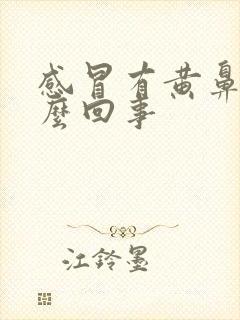 感冒有黄鼻
麼回事
江铃墨